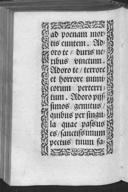 ad poenam mor
tis euntem. Ad
oro te / durus in
tribus vinctum.
Adoro te / terrore
et horrore mun
orum perterri
tum. Adoro pijs
simos gemitus
quibus per singu
la quae passus
es / sanctissimum
pectus tuum fa